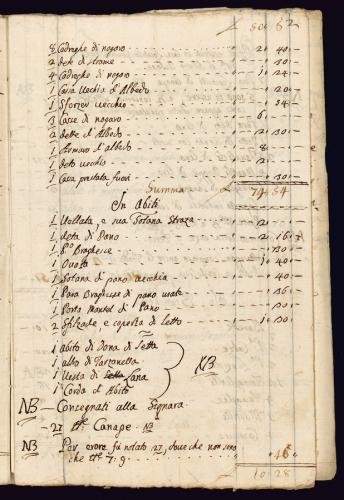 50: 52
8 Cadreghe di nogaro 2: 40:
2 dete di strame : 30:
4 Cadreghe di nogaro 1: 24:
1 Casa Vechia d'Albedo : 20:
1 Sforzer vecchio : 34:
3 Casse di nogaro 6:
2 dette d'Albedo 2: 30:
1 Armaro d'albedo 8:
1 deto vecchio 2:
1 Cassa prestata fuori : 30:
Summa 74: 54
In Abiti
1 Vellata, e sua Sotana Straza 2:
1 deta di Pano 2: 16:
1 Braghesse : 30:
1 1: 40:
1 Sotana di pano vecchia : 40:
1 Para Braghesse di pano usate : 36:
1 Porta Mantel di Pano : 30:
2 Filzade, e coperta di letto 1: 30:
1 Abito di Dona di Setta
1 altro di Tarzanella
1 Vesta di Setta Lana
1 Corda d'Abito
NB
NB – Consegnati alla Signara
– 27 Canape
NB Per erore fù notato 27, dove che non sono
che 7: 9
: 46
10: 28